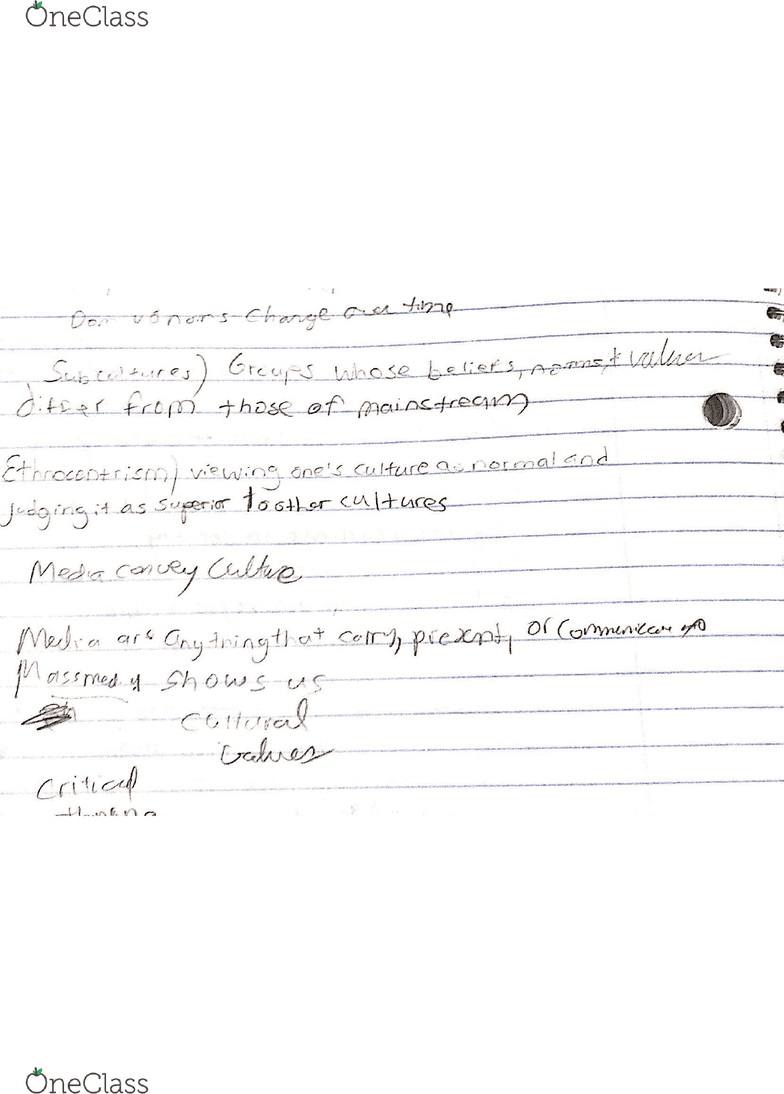 OneClass
Change over time
Subcultures) Groups whose beliefs, norms, + values
differ from those of mainstream
Ethnocentrism) viewing one's culture as normal and
judging it as superior to other cultures
Media convey Culture
Media are anything that carry, present, or
Massmedia shows us
cultural
values
Critical
OneClass